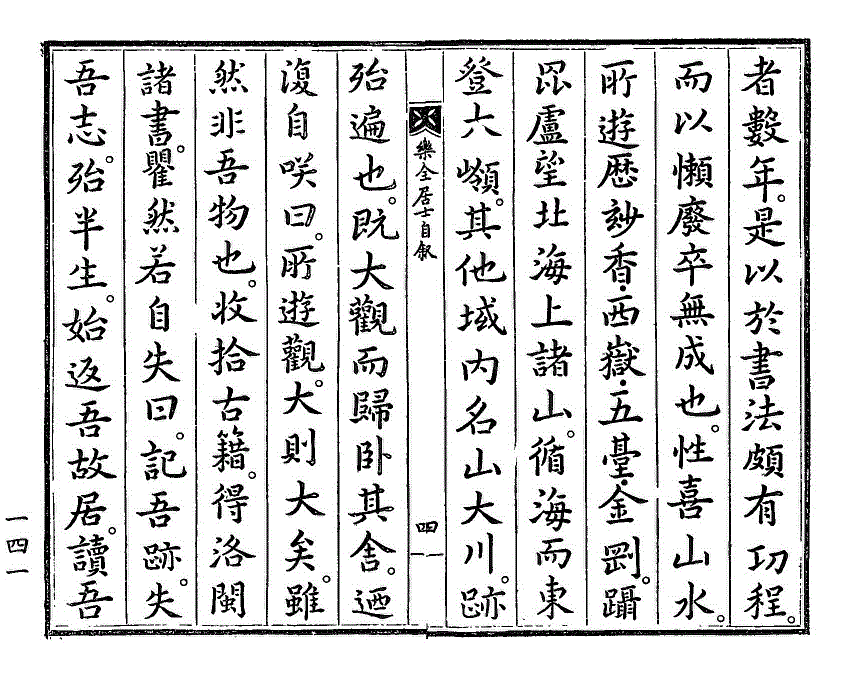 者數年。是以於書法頗有功程。
而以懶廢卒無成也。性喜山水。
所遊歷妙香·西嶽·五臺·金剛。躡
毘盧望北海上諸山。循海而東
登六嶺。其他域內名山大川。跡
樂全居士自敘
四
殆遍也。既大觀而歸臥其舍。迺
復自咲曰。所遊觀。大則大矣。雖
然非吾物也。收拾古籍。得洛閩
諸書。瞿然若自失曰。記吾跡。失
吾志。殆半生。始返吾故居。讀吾
一四一